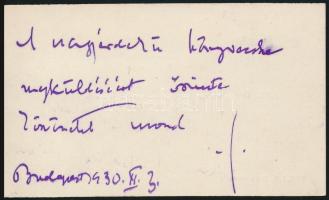 A nagyérdekű könyvecske
megküldéséért őszinte
köszönetet mond
Budapest 930. XI. 3.